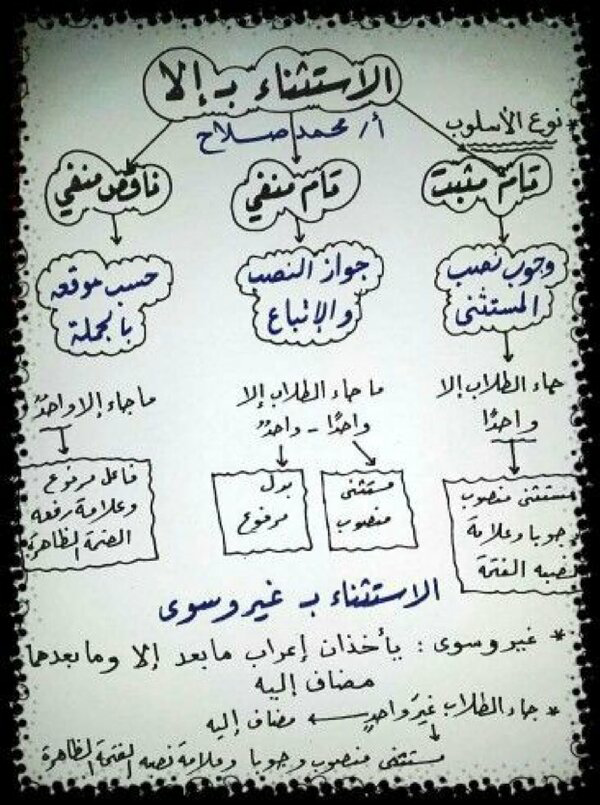 الاستثناء بـ إلا
أ/ محمد صلاح
* نوع الأسلوب
تام مثبت
تام منفي
ناقص منفي
وجوب نصب
المستثنى
جواز النصب
والإتباع
حسب موقعه
بالجملة
جاء الطلاب إلا
واحدًا
ما جاء الطلاب إلا
واحدًا - واحدٌ
ما جاء إلا واحدٌ
مستثنى منصوب
وجوبا وعلامة
نصبه الفتحة
مستثنى
منصوب
بدل
مرفوع
فاعل مرفوع
وعلامة رفعه
الضمة الظاهرة
الاستثناء بـ غير وسوى
* غير وسوى : يأخذان إعراب ما بعد إلا وما بعدهما
مضاف إليه
* جاء الطلاب غيرَ واحدٍ مضاف إليه
مستثنى منصوب وجوبا وعلامة نصبه الفتحة الظاهرة